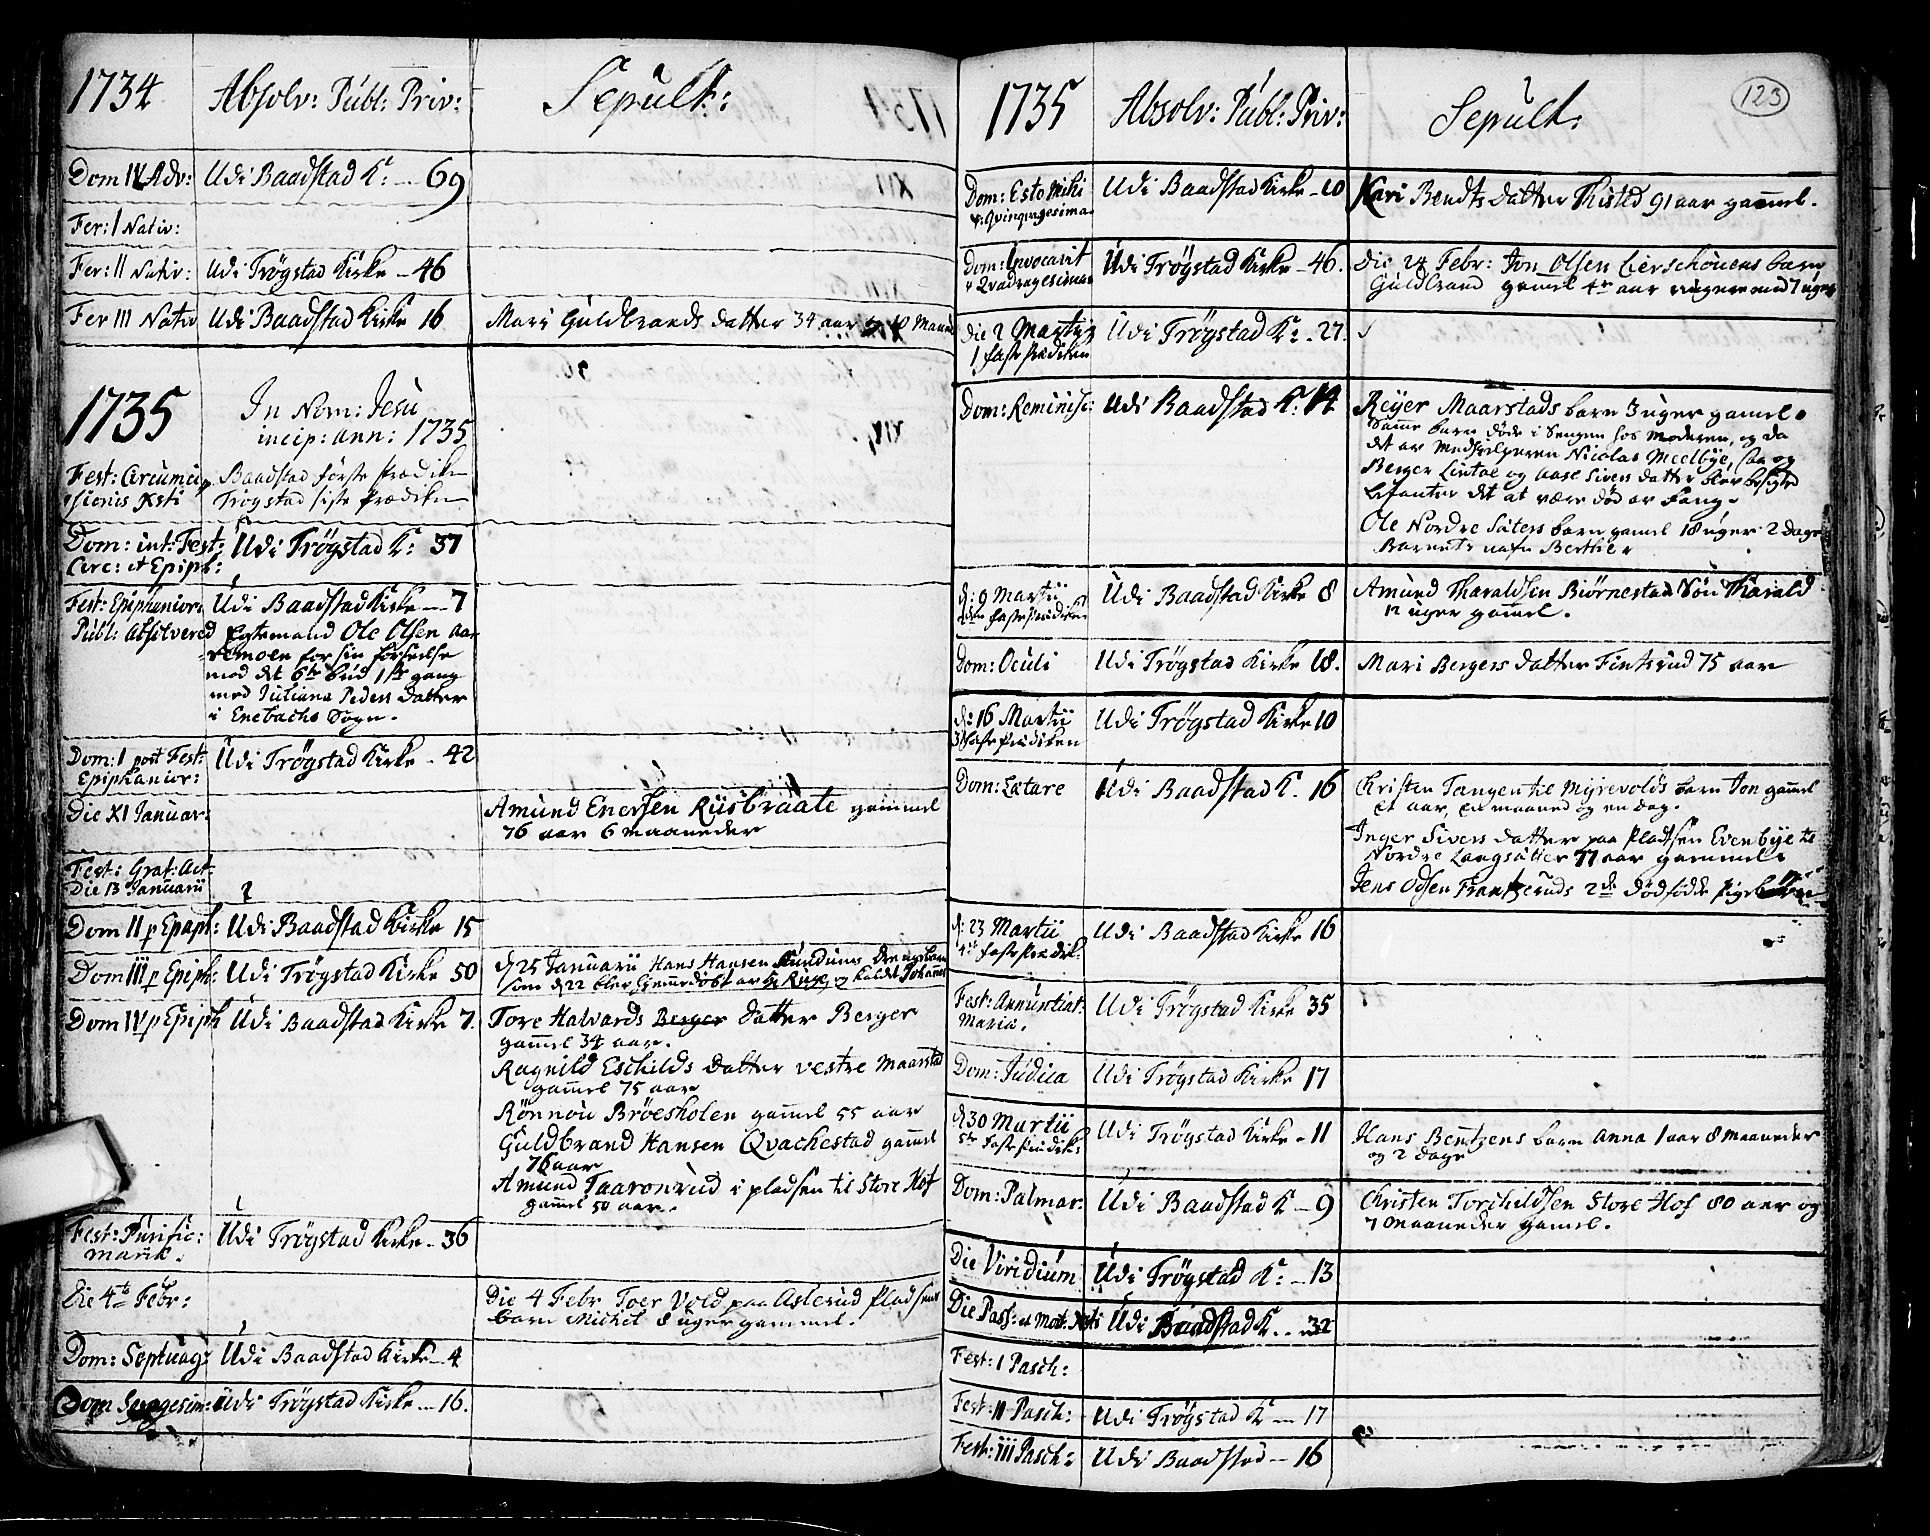 1734 Absolv: Publ: Priv: Sepult:
Dom IV Adv: Udi Baadstad K: - 69
Fer: I Nativ:
Fer: II Nativ: Udi Trøgstad Kirke - 46
Fer III Nativ Udi Baadstad Kirke 16 Mari Guldbrands datter 34 aar
1735 In Nom: Jesu
incip: ann: 1735
Fest: Circumcis Baadstad første Prædiken
sionis Xsti Trøgstad siste Prædiken
Dom: int: Fest: Udi Trøgstad K: 37
Circ: et Epiph:
Fest: Epiphanior: Udi Baadstad Kirke - 7
Publ: absolvered Egtemand Ole Olsen Aa-
remoen for sin forseelse
mod det 6te bud 1ste gang
med Juliana Peders datter
i Enebachs Sogn.
Dom: I post Fest: Udi Trøgstad Kirke - 42
Epiphanior:
Die XI Januar: Amund Enersen Riisbraate gammel
76 aar 6 maaneder
Fest: Grat: Act:
Die 13 Januarii
Dom II p Epiph: Udi Baadstad Kirke 15
Dom III p Epiph: Udi Trøgstad Kirke 50 d 25 Januarii Hans Hansen
som d 22 blev hiemedøbt kaldt Johannes
Dom IV p Epiph Udi Baadstad Kirke 7. Tore Halvords Berger datter Berger
gammel 34 aar.
Ragnild Eschilds datter vestre Maarstad
gammel 75 aar
Rønnou Brøesholen gammel 55 aar
Guldbrand Hansen Qvachestad gammel
76 aar
Amund Taaronrud i pladsen til Store Hof
gammel 50 aar.
Fest: Purific: Udi Trøgstad Kirke - 36
Mariæ.
Die 4te Febr: Die 4 Febr Toer Vold paa Asterud Pladsens
barn Michel 8 uger gammel.
Dom: Septuag: Udi Baadstad Kirke - 4
Dom Sexagesim: Udi Trøgstad Kirke - 16.
1735 Absolv: Publ: Priv: Sepult: 123
Dom: Esto Mihi Udi Baadstad Kirke - 10 Kari Bendts datter Thisted 91 aar gammel.
v: Qvinqvagesima
Dom: Invocavit Udi Trøgstad Kirke - 46. Die 24 Febr: Jon Olsen barn
v Qvadragesima Guldbrand gamel 4re aar mod 7 uger
die 2 Martij Udi Trøgstad K: - 27.
1 faste prædiken
Dom: Reminisc: Udi Baadstad K: 14 Reyer Maarstads barn 3 uger gamel.
Samme barn døde i Sengen hos moderen, og da
det av Medhielperen Nicolas Meelbye, saa og
Berger Lintoe og Aase Sivers datter blev besigted
befantes det at være død av fang.
Ole Nordre Säters barn gamel 18 uger 2 dage
Barnets nafn Berthe.
d: 9 Martii Udi Baadstad Kirke 8 Amund Tharaldsen Biørnestad Søn Tharald
2den faste prædiken 12 uger gammel.
Dom: Oculi Udi Trøgstad Kirke 18. Mari Bergers datter Fintsrud 75 aar
d: 16 Martii Udi Trøgstad Kirke 10
3 faste Prædiken
Dom: Lætare Udi Baadstad K. 16 Christen Tangen til Myrevolds barn Jon gammel
et aar, en maaned og en dag.
Inger Sivers datter paa Pladsen Evenbye til
Nordre Langsæter 77 aar gammel
Jens Olsen Frantzeruds 2de dødfødde pigebørn
d: 23 Martii Udi Baadstad Kirke 16
4de faste prædik:
Fest: Annuntiat: Udi Trøgstad Kirke 35
Mariæ.
Dom: Judica Udi Trøgstad Kirke 17
d 30 Martii Udi Trøgstad Kirke - 11 Hans Bentzens barn Anna 1 aar 8 maaneder
5te faste prædik: og 2 dage
Dom: Palmar: Udi Baadstad K - 9 Christen Torchildsen Store Hof 80 aar og
7 maaneder gamel.
Die Viridium Udi Trøgstad K: - 13
Die Pass: et Mort: Xsti Udi Baadstad K. - 32
Fest: I Pasch:
Fest: II Pasch: Udi Trøgstad K - 17
Fest: III Pasch: Udi Baadstad - 16